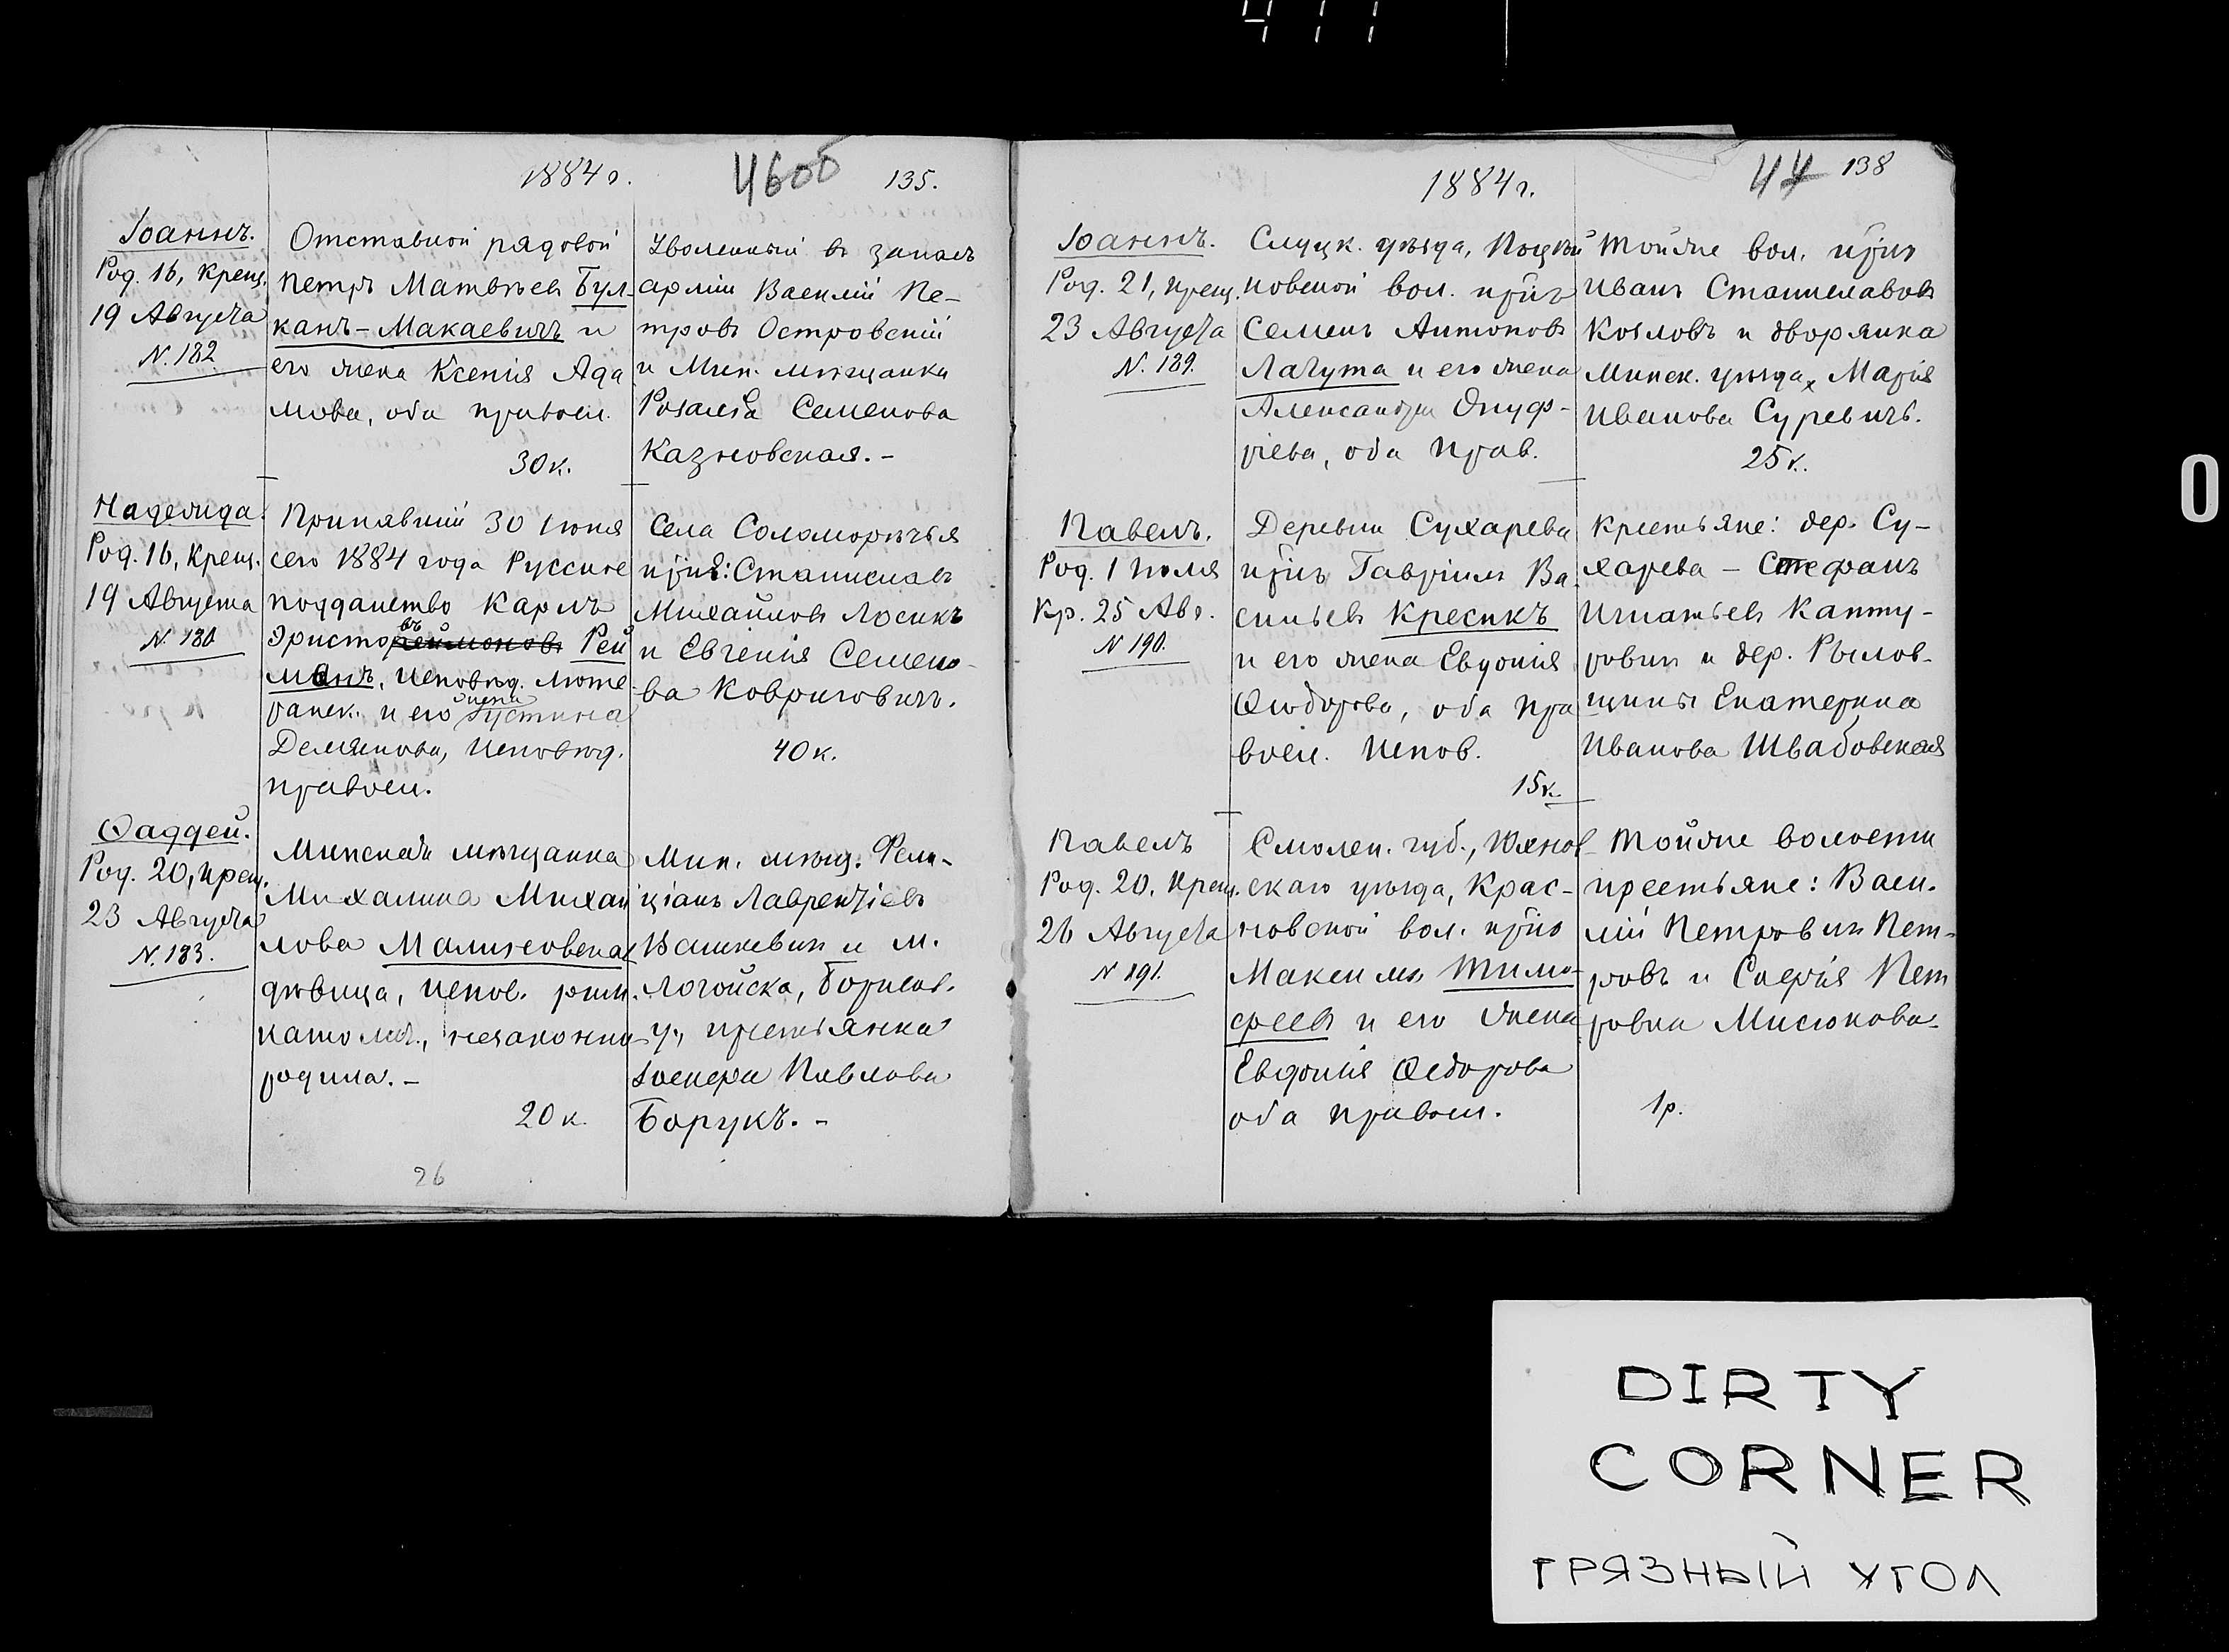 1884 г.
4600
135.
Іоаннъ.
Род. 16, Крещ.
19 Августа
N. 182
Отставной рядовой
Петръ Матвѣевъ Бул-
канъ-Макаевичъ и
его жена Ксенія Ада
мова, оба правосл.
30 к.
Уволенный въ запасъ
арміи Василій Пе-
тровъ Островскій
и Мин. мѣщанка
Розалія Семенова
Казновская. -
Надежда.
Род. 16, Крещ.
19 Августа
N. 180
Принявшій 30 Іюня
сего 1884 года Русское
подданство Карлъ
Христо въ Рей
манъ, исповѣд. люте
ранск. и его жена Густина
Демянова, исповѣд.
правосл.
Села Соломорѣчья
крѣе: Станиславъ
Михайловъ Лосикъ
и Евгенія Семено-
ва Ковриговичъ.
40 к.
Ѳаддей.
Род. 20, Крещ.
23 Августа
N. 183.
Минская мѣщанка
Михалина Михаи
лова Малиновская
дѣвица, испов. рим.
католич., незаконно
родила. -
20 к.
26
Мин. мѣщ. Фели-
ціанъ Лаврентіевъ
Вашкевичъ и м.
Логойска, Борисов.
у., крестьянка
Павлова
Борукъ. -
1884 г.
44 138
Іоаннъ.
Род. 21, Крещ.
23 Августа
N. 189.
Слуцк. уѣзда,
новской вол. крѣнъ
Семенъ Антоновъ
Лагута и его жена
Александра Онуф-
ріева, оба прав.
Тойже вол. крѣнъ
Иванъ Станиславовъ
Козловъ и дворянка
Минск. уѣзда, Марія
Иванова Суревичъ.
25 к.
Павелъ.
Род. 1 Іюля
Кр. 25 Авг.
N 190.
Деревни Сухарева
крѣнъ Гавріилъ Ва-
сильевъ Кресикъ
и его жена Евдокія
Ѳеодорова, оба пра
восл. испов.
15 к.
Крестьяне: дер. Су-
харева - Стефанъ
Игнатьевъ Капту-
ровичъ и дер. Рылов-
щины Екатерина
Иванова Швабовская
Павелъ
Род. 20, Крещ.
26 Августа
N 191.
Смолен. губ., Юхнов
скаго уѣзда, Крас-
новской вол. крѣнъ
Максимъ Тимо-
феевъ и его жена
Евдокія Ѳедорова
оба правосл.
Тойже волости
крестьяне: Васи-
лій Петровичъ Пет-
ровъ и Софія Пет
ровна Мисюкова.
1 р.
0
DIRTY
CORNER
ГРЯЗНЫЙ УГОЛ